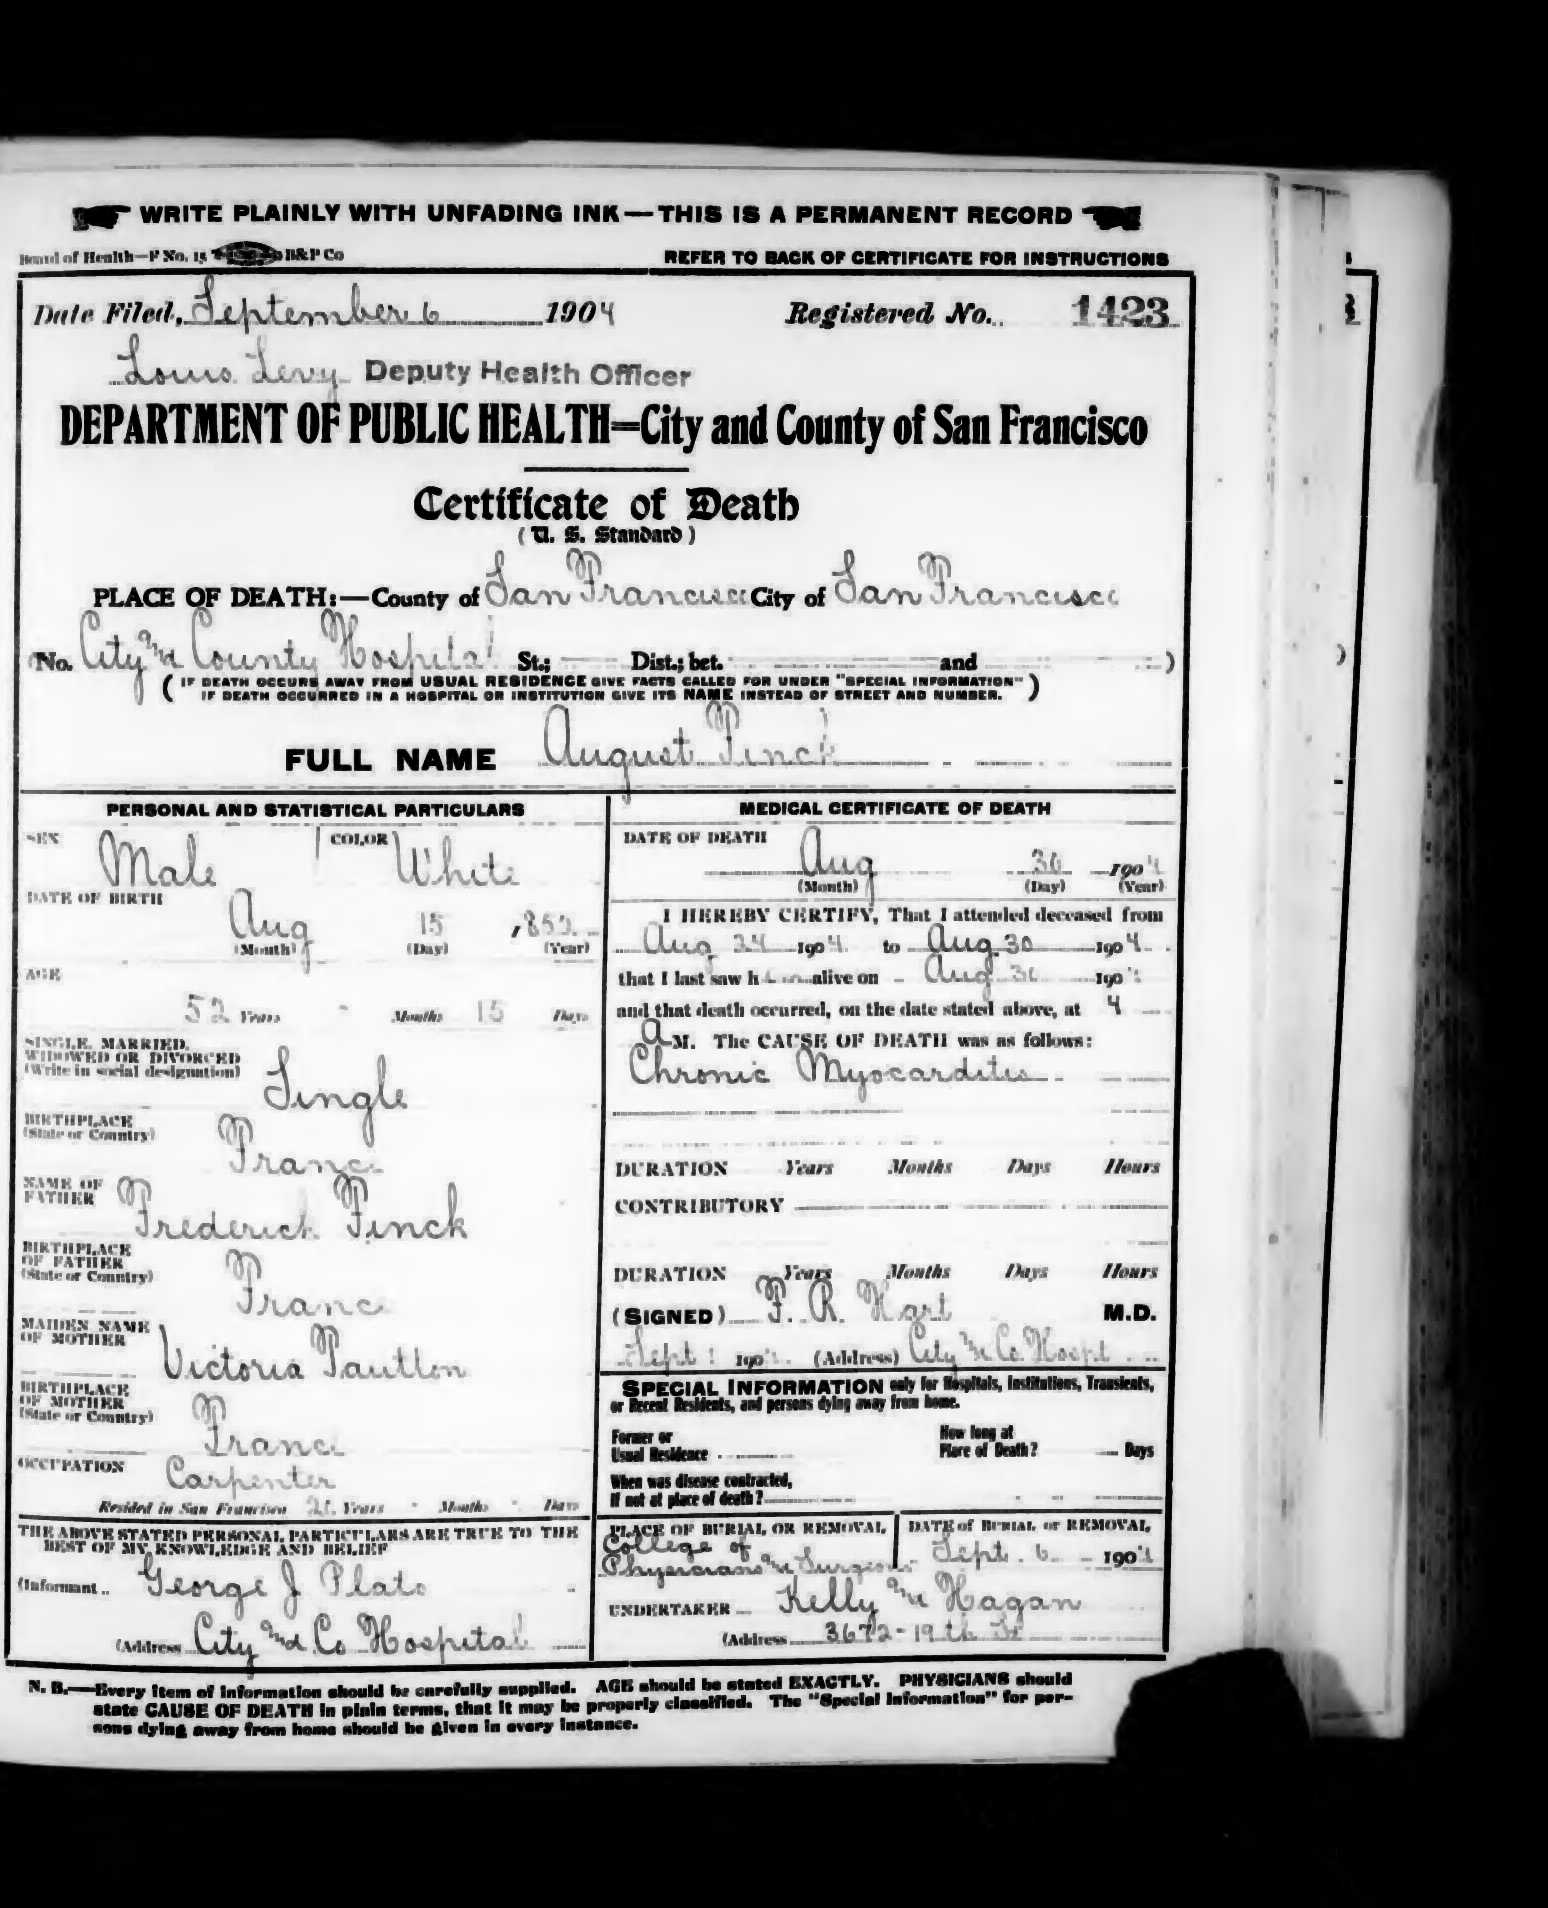 WRITE PLAINLY WITH UNFADING INK—THIS IS A PERMANENT RECORD
Board of Health—F No. 15 B&P Co REFER TO BACK OF CERTIFICATE FOR INSTRUCTIONS
Date Filed, September 6 1904 Registered No. 1423
Louis Levy Deputy Health Officer
DEPARTMENT OF PUBLIC HEALTH=City and County of San Francisco
Certificate of Death
(U. S. Standard)
PLACE OF DEATH:—County of San Francisco City of San Francisco
(No. City and County Hospital St.; Dist.; bet. and )
(IF DEATH OCCURS AWAY FROM USUAL RESIDENCE GIVE FACTS CALLED FOR UNDER "SPECIAL INFORMATION"
IF DEATH OCCURRED IN A HOSPITAL OR INSTITUTION GIVE ITS NAME INSTEAD OF STREET AND NUMBER.)
FULL NAME August Finck
PERSONAL AND STATISTICAL PARTICULARS
SEX Male COLOR White
DATE OF BIRTH
Aug 15 , 852
(Month) (Day) (Year)
AGE
52 Years - Months 15 Days
SINGLE, MARRIED,
WIDOWED OR DIVORCED
(Write in social designation) Single
BIRTHPLACE
(State or Country) France
NAME OF
FATHER Frederick Finck
BIRTHPLACE
OF FATHER
(State or Country) France
MAIDEN NAME
OF MOTHER Victoria
BIRTHPLACE
OF MOTHER
(State or Country) France
OCCUPATION Carpenter
Resided in San Francisco Years - Months - Days
THE ABOVE STATED PERSONAL PARTICULARS ARE TRUE TO THE
BEST OF MY KNOWLEDGE AND BELIEF
(Informant George J Plato
(Address City and Co Hospital
MEDICAL CERTIFICATE OF DEATH
DATE OF DEATH
Aug 30 1904
(Month) (Day) (Year)
I HEREBY CERTIFY, That I attended deceased from
Aug 24 1904 to Aug 30 1904
that I last saw him alive on Aug 30 1904
and that death occurred, on the date stated above, at 4
A M. The CAUSE OF DEATH was as follows:
Chronic Myocarditis
DURATION Years Months Days Hours
CONTRIBUTORY
DURATION Years Months Days Hours
(SIGNED) F. R. Hart M.D.
Sept 1 1904 (Address) City and Co. Hospt
SPECIAL INFORMATION only for Hospitals, Institutions, Transients,
or Recent Residents, and persons dying away from home.
Former or
Usual Residence
How long at
Place of Death? Days
When was disease contracted,
If not at place of death?
PLACE OF BURIAL OR REMOVAL
College of
Physicians and Surgeons
DATE of BURIAL or REMOVAL
Sept. 6 1904
UNDERTAKER Kelly and Hagan
(Address 3672-19th St
N. B.—Every item of information should be carefully supplied. AGE should be stated EXACTLY. PHYSICIANS should
state CAUSE OF DEATH in plain terms, that it may be properly classified. The "Special Information" for per-
sons dying away from home should be given in every instance.